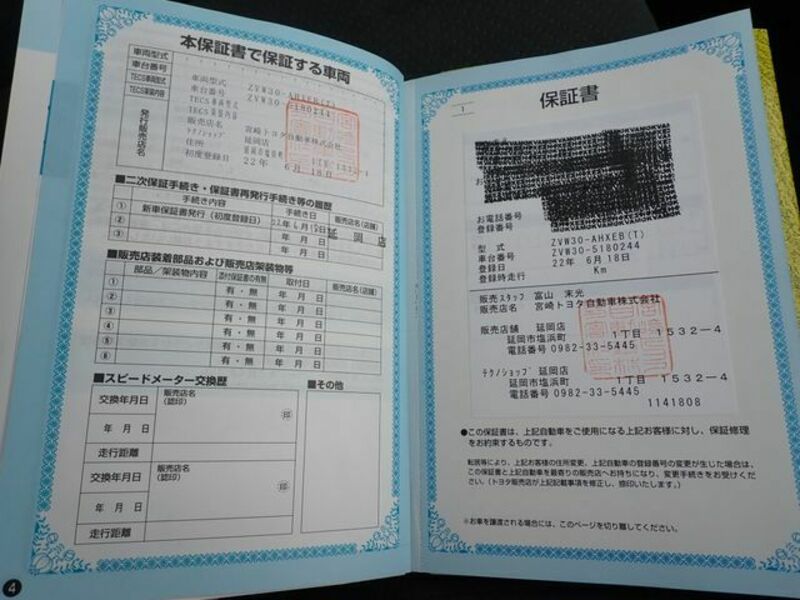 本保証書で保証する車両
車両型式
車台番号
TECS車両型式
TECS架装内容
発行販売店名
車両型式 ZVW30-AHXEB(T)
車台番号 ZVW30-5180244
TECS車両型式
TECS架装内容
販売店 宮崎トヨタ自動車株式会社
テクノショップ 延岡店
住所 延岡市塩浜町 1丁目1532-4
初度登録日 22年 6月18日
■二次保証手続き・保証書再発行手続き等の履歴
手続き内容 手続き日 販売店名(店舗)
① 新車保証書発行(初度登録日) 22年6月18日 延岡店
② 年 月 日
③ 年 月 日
■販売店装着部品および販売店架装物等
部品/架装物内容 添付保証書の有無 取付日 販売店名(店舗)
① 有・無 年 月 日
② 有・無 年 月 日
③ 有・無 年 月 日
④ 有・無 年 月 日
⑤ 有・無 年 月 日
⑥ 有・無 年 月 日
■スピードメーター交換歴
交換年月日 販売店名(認印)
年 月 日 印
走行距離
交換年月日 販売店名(認印)
年 月 日 印
走行距離
■その他
4
1
保証書
お電話番号
登録番号
型 式 ZVW30-AHXEB(T)
車台番号 ZVW30-5180244
登録日 22年 6月18日
登録時走行 Km
販売スタッフ 富山 末光
販売店名 宮崎トヨタ自動車株式会社
販売店舗 延岡店
延岡市塩浜町 1丁目1532-4
電話番号 0982-33-5445
テクノショップ 延岡店
延岡市塩浜町 1丁目1532-4
電話番号 0982-33-5445
1141808
●この保証書は、上記自動車をご使用になる上記お客様に対し、保証修理
をお約束するものです。
転居等により、上記お客様の住所変更、上記自動車の登録番号の変更が生じた場合は、
この保証書と上記自動車を最寄りの販売店へお持ちになり、変更手続きをお受けくだ
さい。(トヨタ販売店が上記記載事項を修正し、捺印いたします。)
※お車を譲渡される場合には、このページを切り離してください。